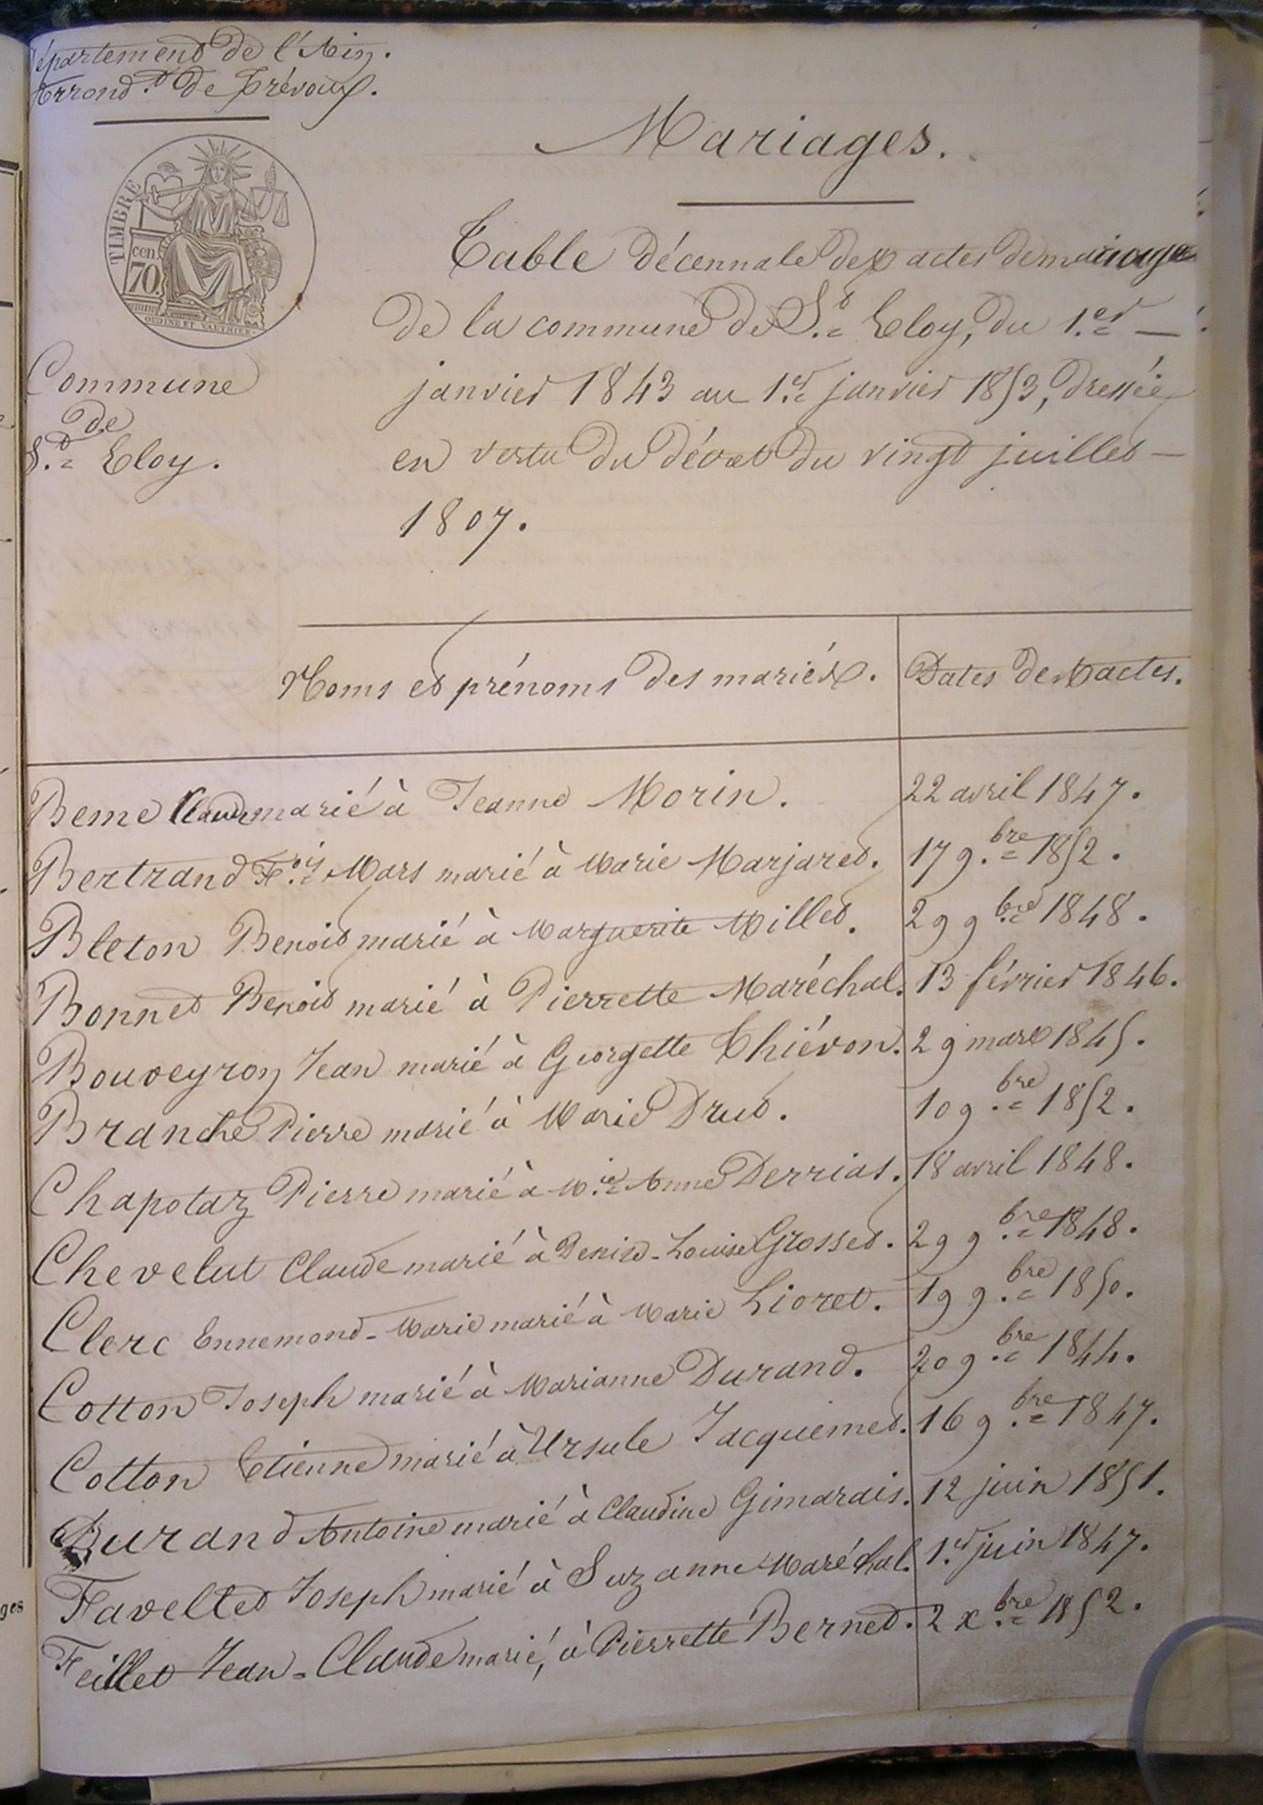 Département de l'Ain.
Arrond.t de Trévoux.
Mariages.
TIMBRE
cen.
70.
OUDINÉ ET VAUTHIER
Table décennale des actes de mariage
de la commune de S.t Eloy, du 1.er —
janvier 1843 au 1.er janvier 1853, dressée
en vertu du décret du vingt juillet —
1807.
Commune
de
S.t Eloy.
Noms et prénoms des mariés. Dates des actes.
Beme Claude marié à Jeanne Morin. 22 avril 1847.
Bertrand F.ois Mars marié à Marie Marjaret. 17 9.bre 1852.
Bleton Benoit marié à Marguerite Millet. 29 9.bre 1848.
Bonnet Benoit marié à Pierrette Maréchal. 13 février 1846.
Bouveyron Jean marié à Georgette Thiévon. 29 mars 1845.
Branche Pierre marié à Marie Drut. 10 9.bre 1852.
Chapotaz Pierre marié à M.ie Anne Derrias. 18 avril 1848.
Chevelut Claude marié à Denise-Louise Grosset. 29 9.bre 1848.
Clerc Ennemond-Marie marié à Marie Lioret. 19 9.bre 1850.
Cotton Joseph marié à Marianne Durand. 20 9.bre 1844.
Cotton Etienne marié à Ursule Jacquemet. 16 9.bre 1847.
Durand Antoine marié à Claudine Gimarais. 12 juin 1851.
Favellet Joseph marié à Suzanne Maréchal. 1.er juin 1847.
Feillet Jean-Claude marié, à Pierrette Bernet. 2 x.bre 1852.
ges